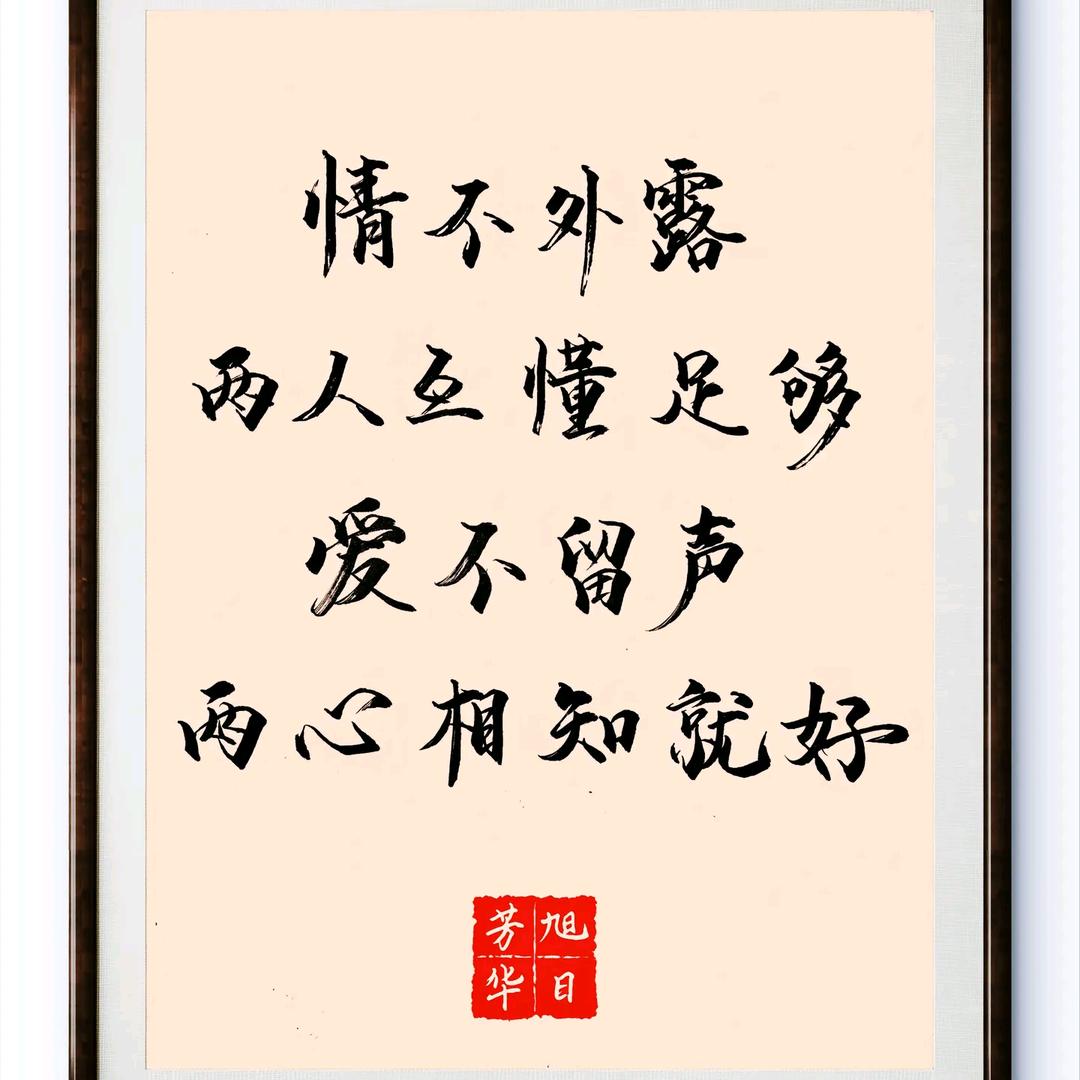 情不外露
两人互懂足够
爱不留声
两心相知就好
旭日
芳华